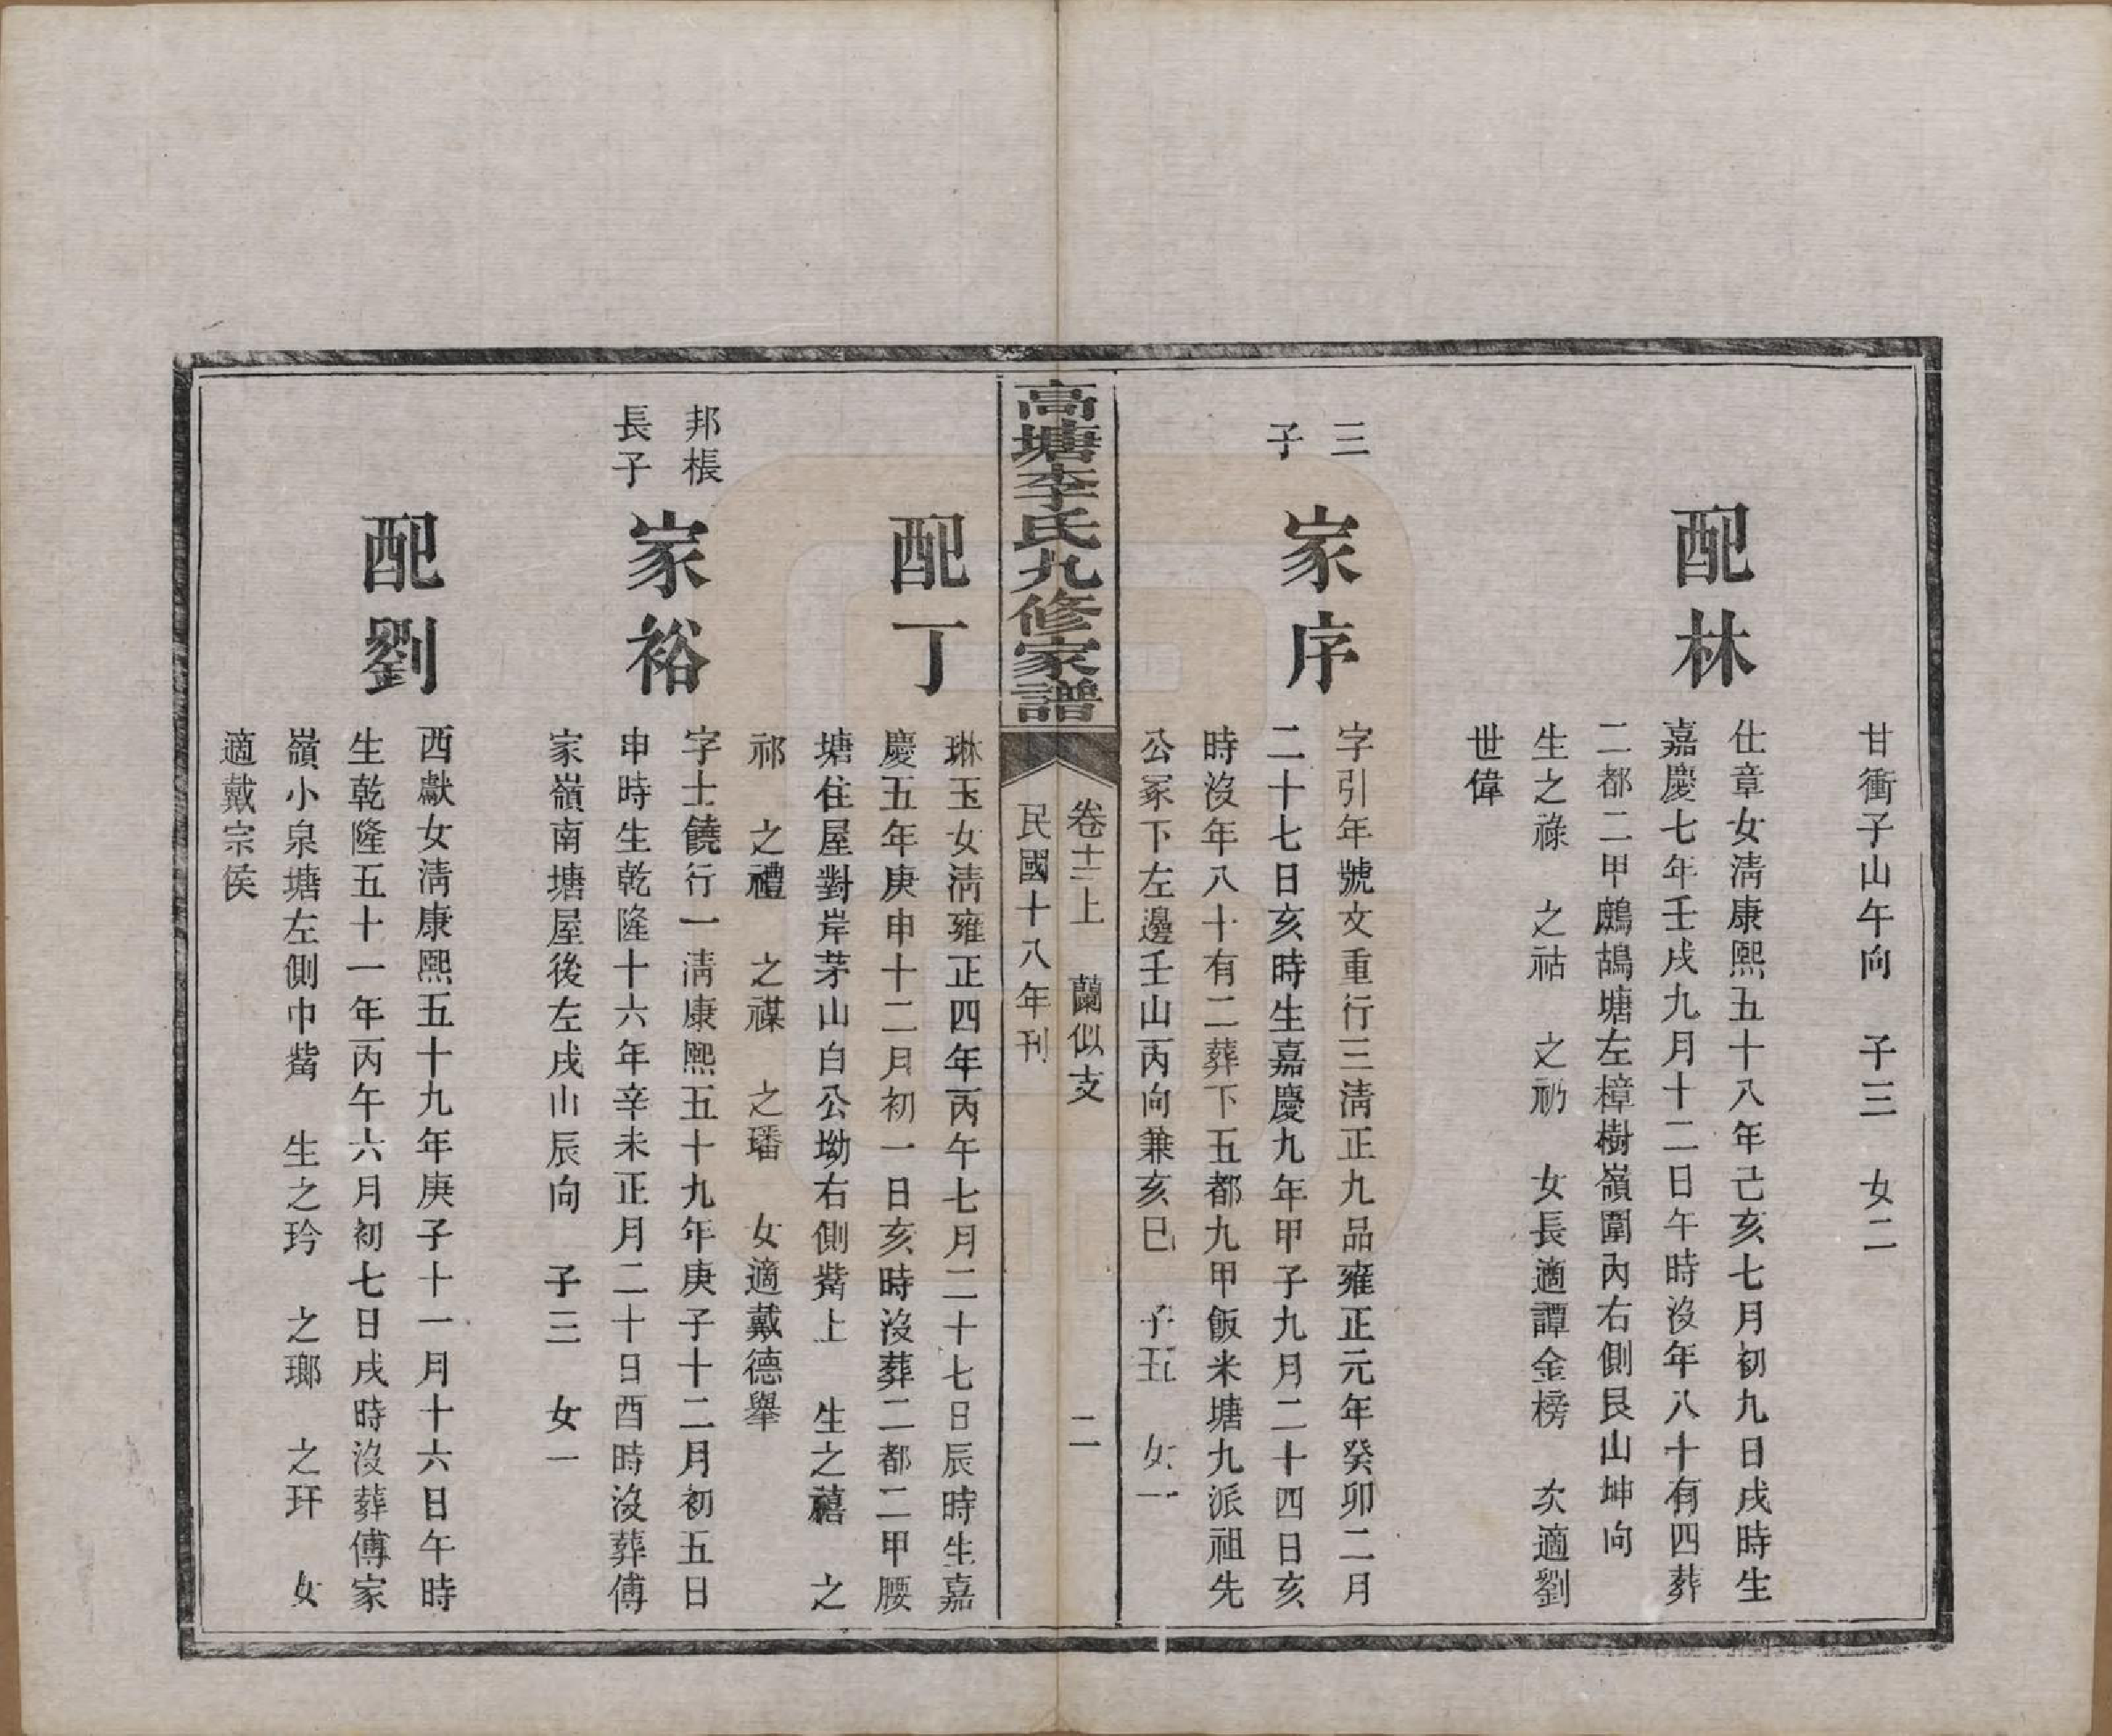 甘衝子山午向　子三　女二
配林
仕章女淸康熙五十八年己亥七月初九日戌時生
嘉慶七年壬戌九月十二日午時沒年八十有四葬
二都二甲鷓鴣塘左樟樹嶺圍內右側艮山坤向
生之祿　之祜　之礽　女長適譚金榜　次適劉
世偉
三
子
家序
字引年號文重行三淸正九品雍正元年癸卯二月
二十七日亥時生嘉慶九年甲子九月二十四日亥
時沒年八十有二葬下五都九甲飯米塘九派祖先
公冢下左邊壬山丙向兼亥巳　子五　女一
高塘李氏九修家譜
卷十二上　蘭似支　二
民國十八年刊
配丁
琳玉女淸雍正四年丙午七月二十七日辰時生嘉
慶五年庚申十二月初一日亥時沒葬二都二甲腰
塘住屋對岸茅山白公坳右側觜上　生之禧　之
祁　之禮　之禖　之璠　女適戴德舉
邦棖
長子
家裕
字士饒行一淸康熙五十九年庚子十二月初五日
申時生乾隆十六年辛未正月二十日酉時沒葬傅
家嶺南塘屋後左戌山辰向　子三　女一
配劉
西獻女淸康熙五十九年庚子十一月十六日午時
生乾隆五十一年丙午六月初七日戌時沒葬傅家
嶺小泉塘左側巾觜　生之玲　之瑯　之玕　女
適戴宗侯